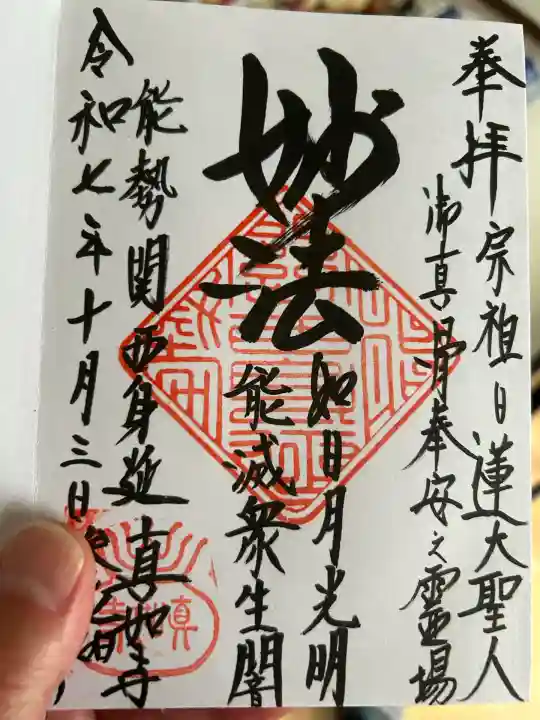 奉拝
宗祖日蓮大聖人
御真骨奉安之霊場
妙法
如日月光明
能滅衆生闇
能勢関西身延
真如寺
令和七年十月三日